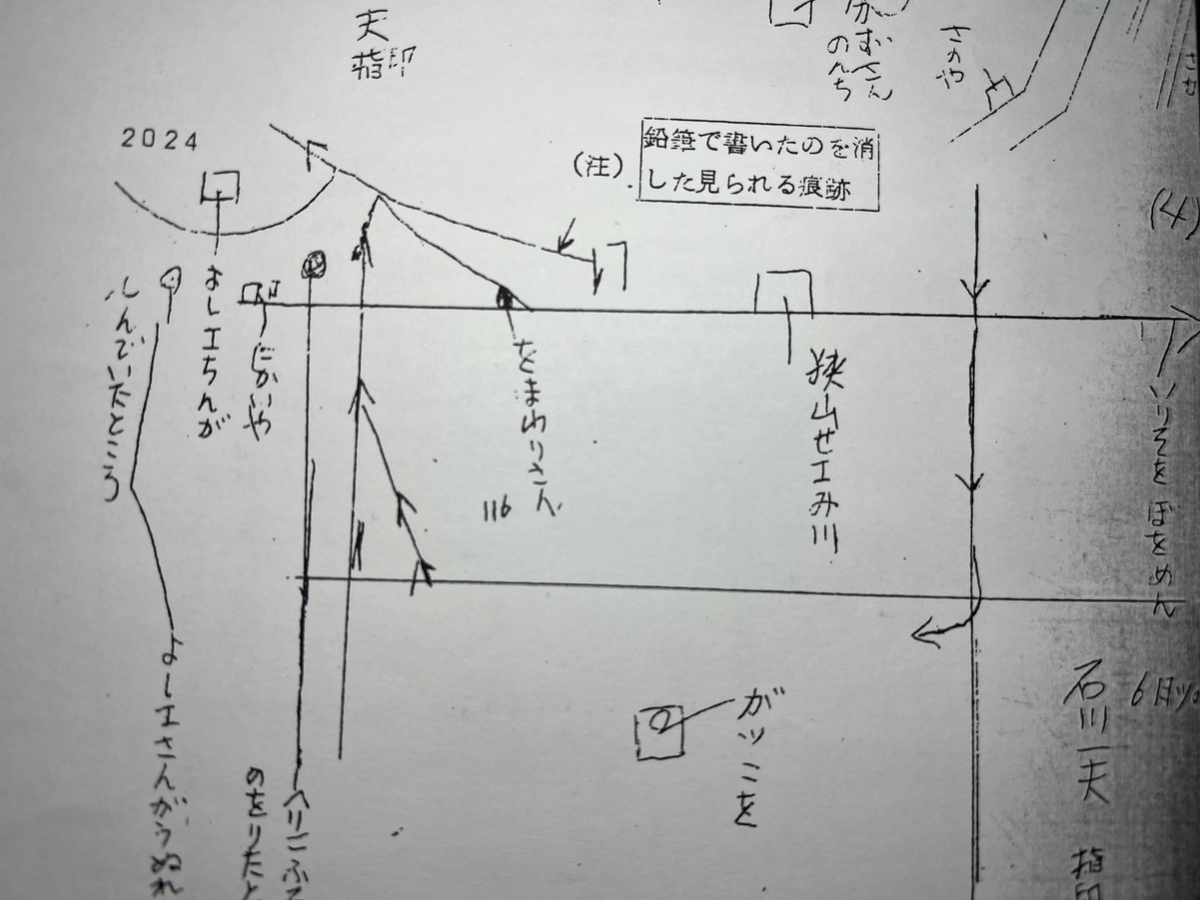 天
指印
のんち
さのや
2024
(注)
鉛筆で書いたのを消
した見られる痕跡
(4)
よしエちんが
にかいや
をまわりさん
116
狭山せエみ川
いりそをぼをめん
しんでいたところ
よしエさんがうめれ
のをりたと
がッこを
石川一夫
指印
6月